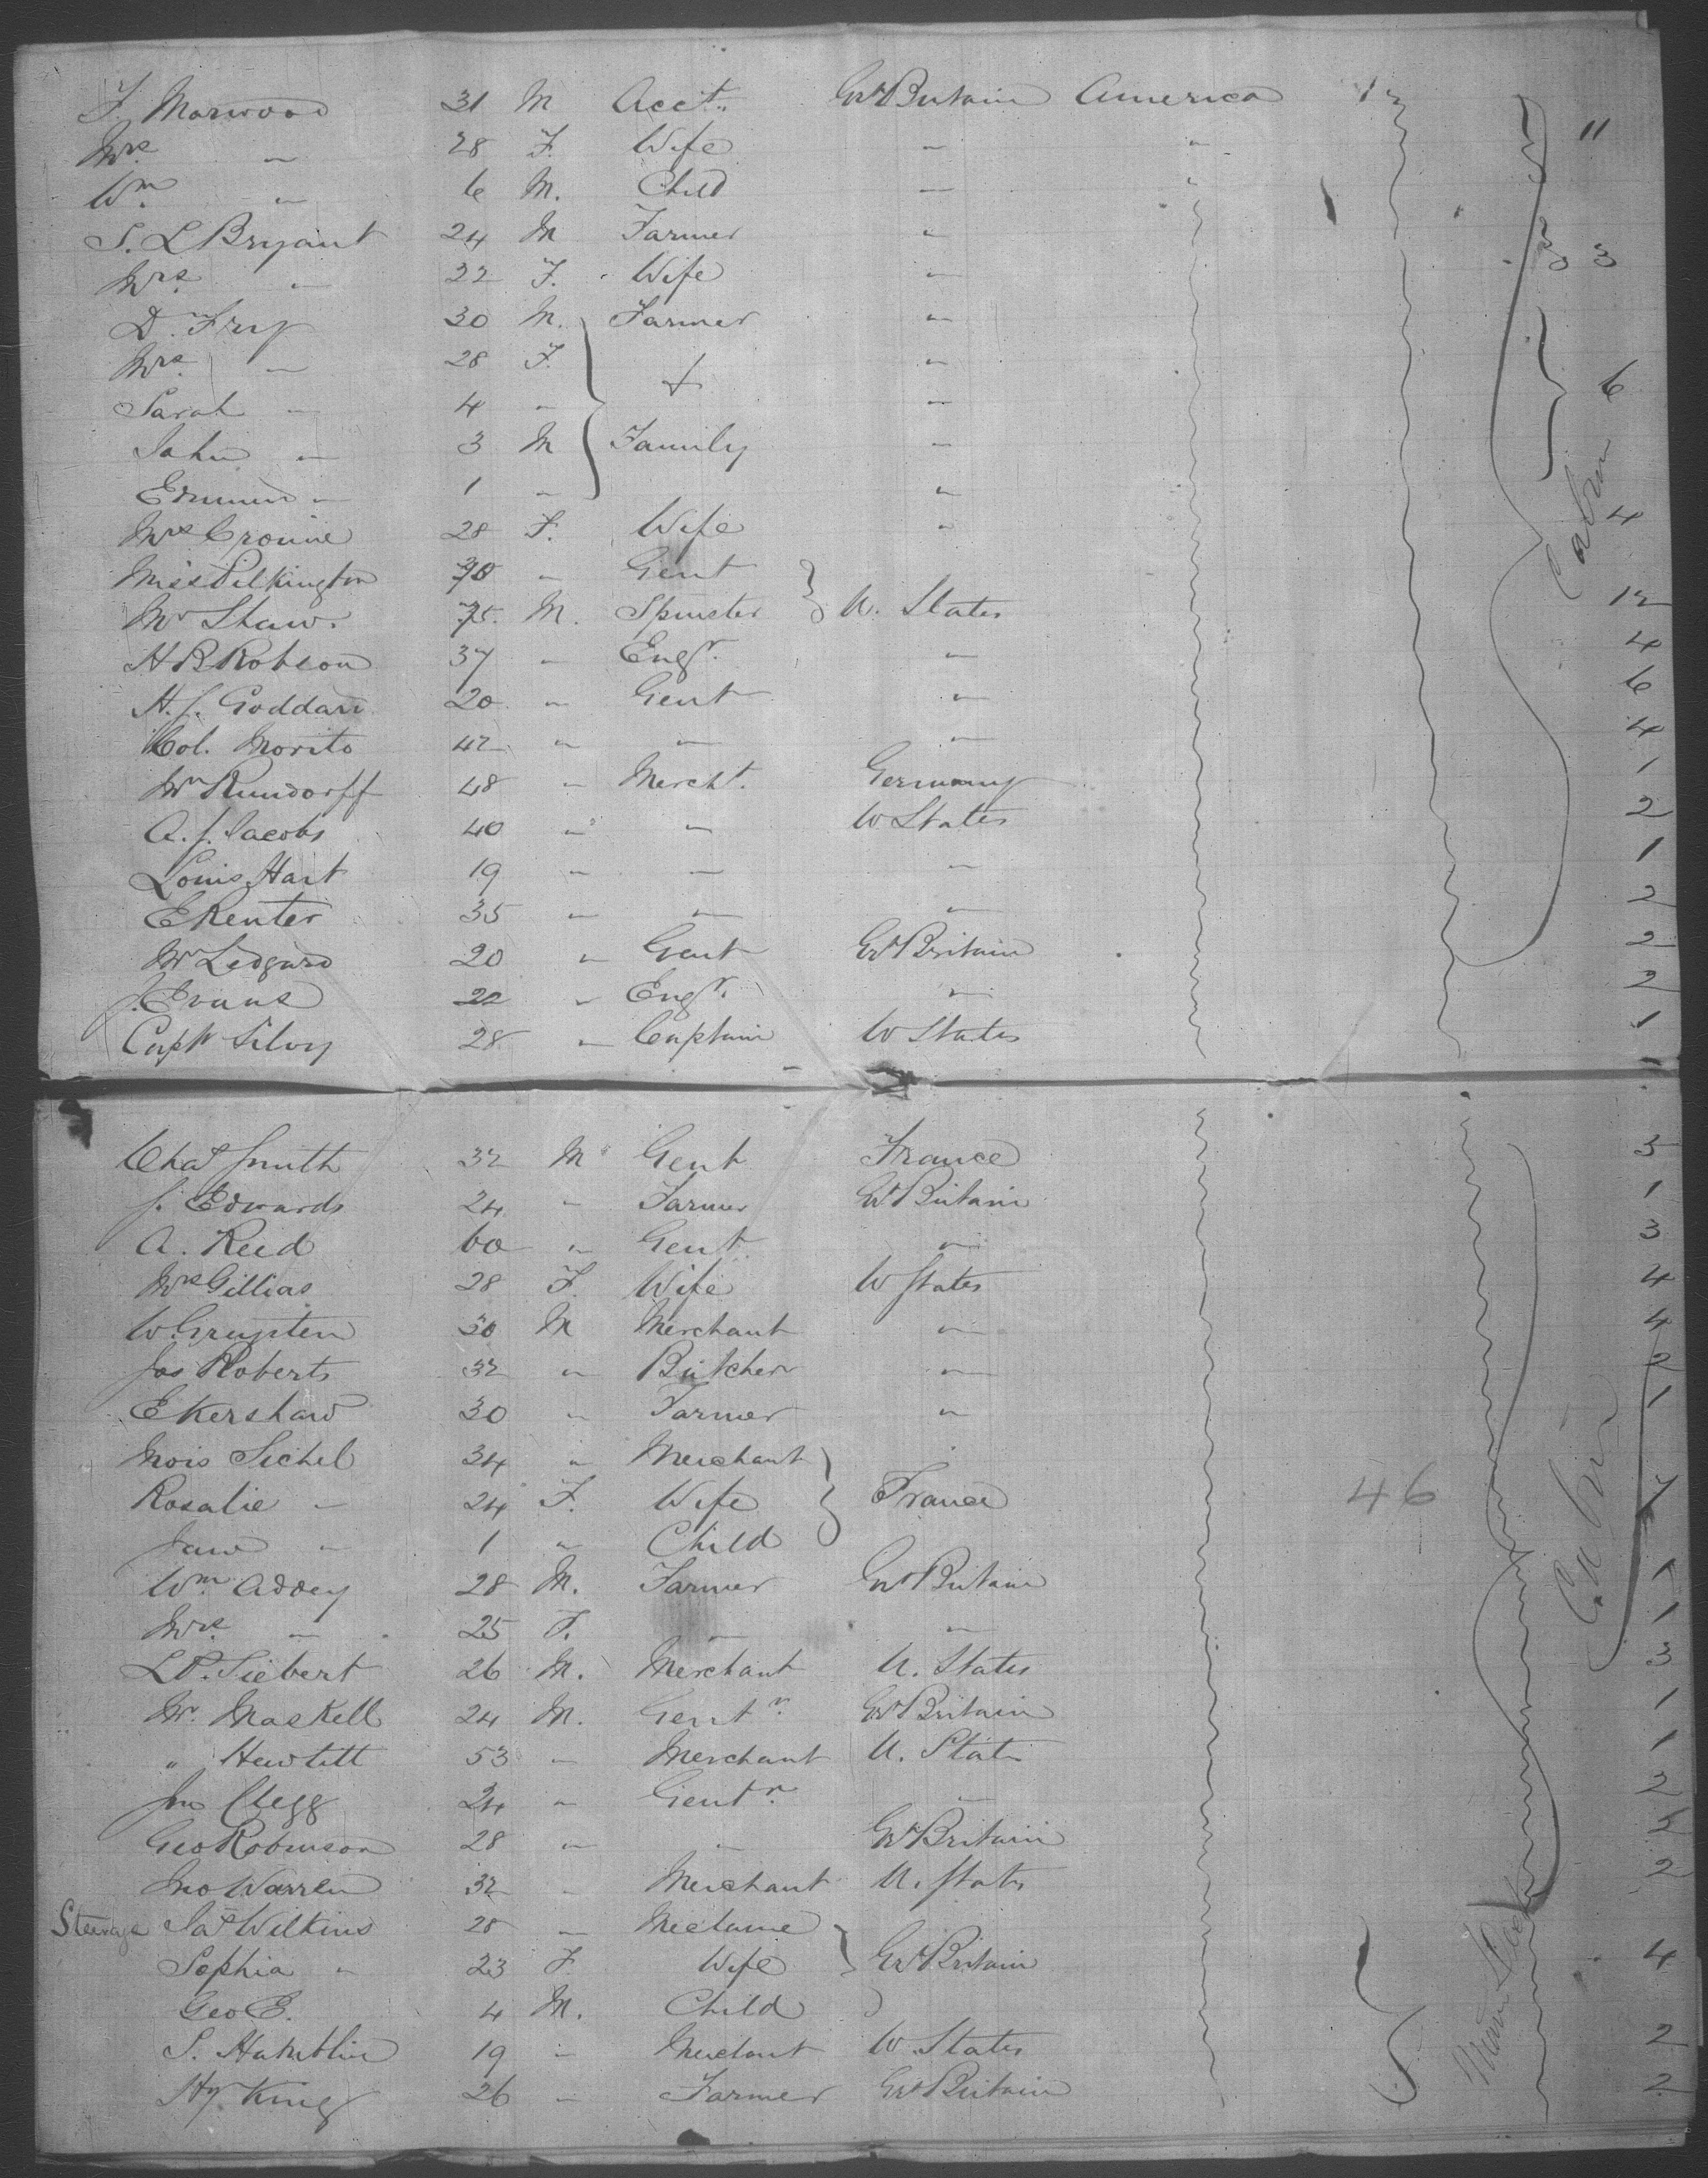 F. Marwood 31 M Acct. Gt Britain America
Mrs. " 28 F. Wife " "
Wm. " 6 M. Child " "
S. L Bryant 24 M Farmer "
Mrs. " 22 F. Wife " 3
D. Fry 30 M. Farmer "
Mrs. " 28 F. + "
Sarah " 4 " " 6
John " 3 M Family "
" 1 " "
Mrs Cronine 28 F. Wife " 4
Miss Pilkington " Gent
Mr Shaw. M. Spinster U. States 12
H B Robson 37 " Engr. " 4
H. J. Goddard 20 " Gent " 6
Col. Morito 42 " " " 4
Mr 48 " Mercht. Germany 1
A. J. Jacobs 40 " " U States 2
Louis Hart 19 " " " 1
E Renter 35 " " " 2
Mr Ledgard 20 " Gent Gt Britain 2
J. Evans 22 " Engr. " 2
Capt Silvy 28 " Captain U States 1
Cabin
Chas Smith 32 M Gent France 3
J. Edwards 24 " Farmer Gt Britain 1
A. Reed 60 " Gent " 3
Mrs Gillias 28 F. Wife U States 4
W. 30 M Merchant " 4
Jas Roberts 32 " Butcher " 2
E Kershaw 30 " Farmer " 1
Mois Sichel 34 " Merchant
Rosalie " 24 F. Wife France 46 7
Jane " 1 " Child
Wm. Addey 28 M. Farmer Gt Britain 1
Mrs. " 25 F. " " 1
L P. Siebert 26 M. Merchant U. States 3
Mr. Maskell 24 M. Gentn. Gt Britain 1
" Hewlett 53 " Merchant U. State 1
Jno Clegg 24 " Gentn. " 2
Geo Robinson 28 " " Gt Britain
Jno Warren 32 " Merchant U. States 2
Cabin
Steerage Jas Wilkins 28 "
Sophia " 23 F Wife Gt Britain 4
Geo E. 4 M. Child
S. Hamblin 19 " U. States 2
Hy. King 26 " Farmer Gt Britain 2
Main Deck